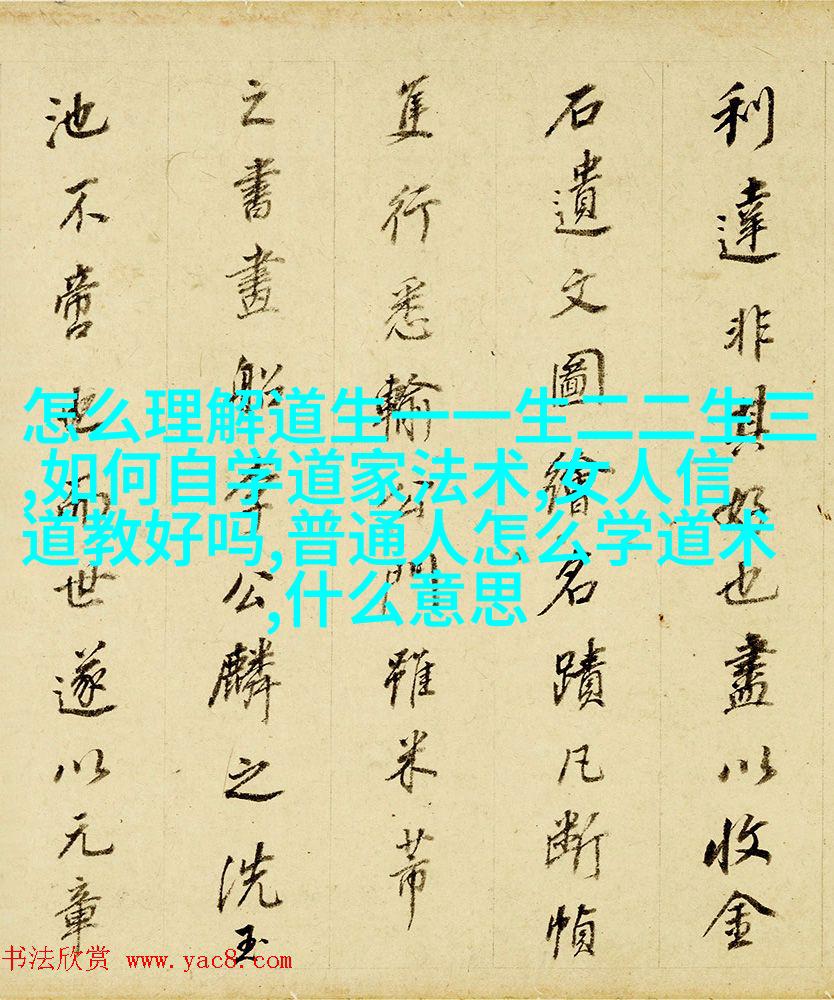 利達非其好也盡以收金
石遺文圖繪名蹟凡斷幀
隻行悉輸公門雖米芾
之書畫船李公麟之洗玉
池不啻也而世遂以元章
怎么理解道生一一生二二生三
,如何自学道家法术,女人信
道教好吗,普通人怎么学道术
,什么意思
书法欣赏 www.yac8.com